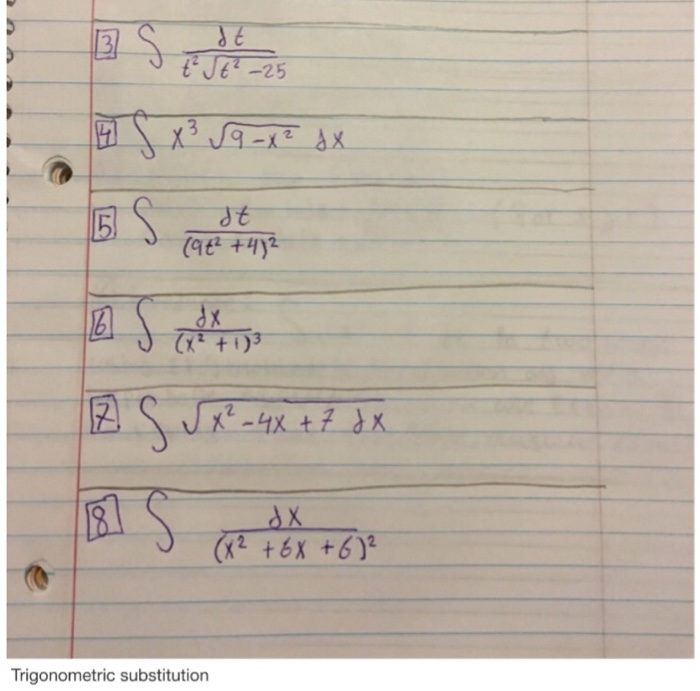 3 ∫ dt / (t² √(t² - 25))
4 ∫ x³ √(9 - x²) dx
5 ∫ dt / (9t² + 4)²
6 ∫ dx / (x² + 1)³
7. ∫ √(x² - 4x + 7 dx)
8 ∫ dx / (x² + 6x + 6)²
Trigonometric substitution